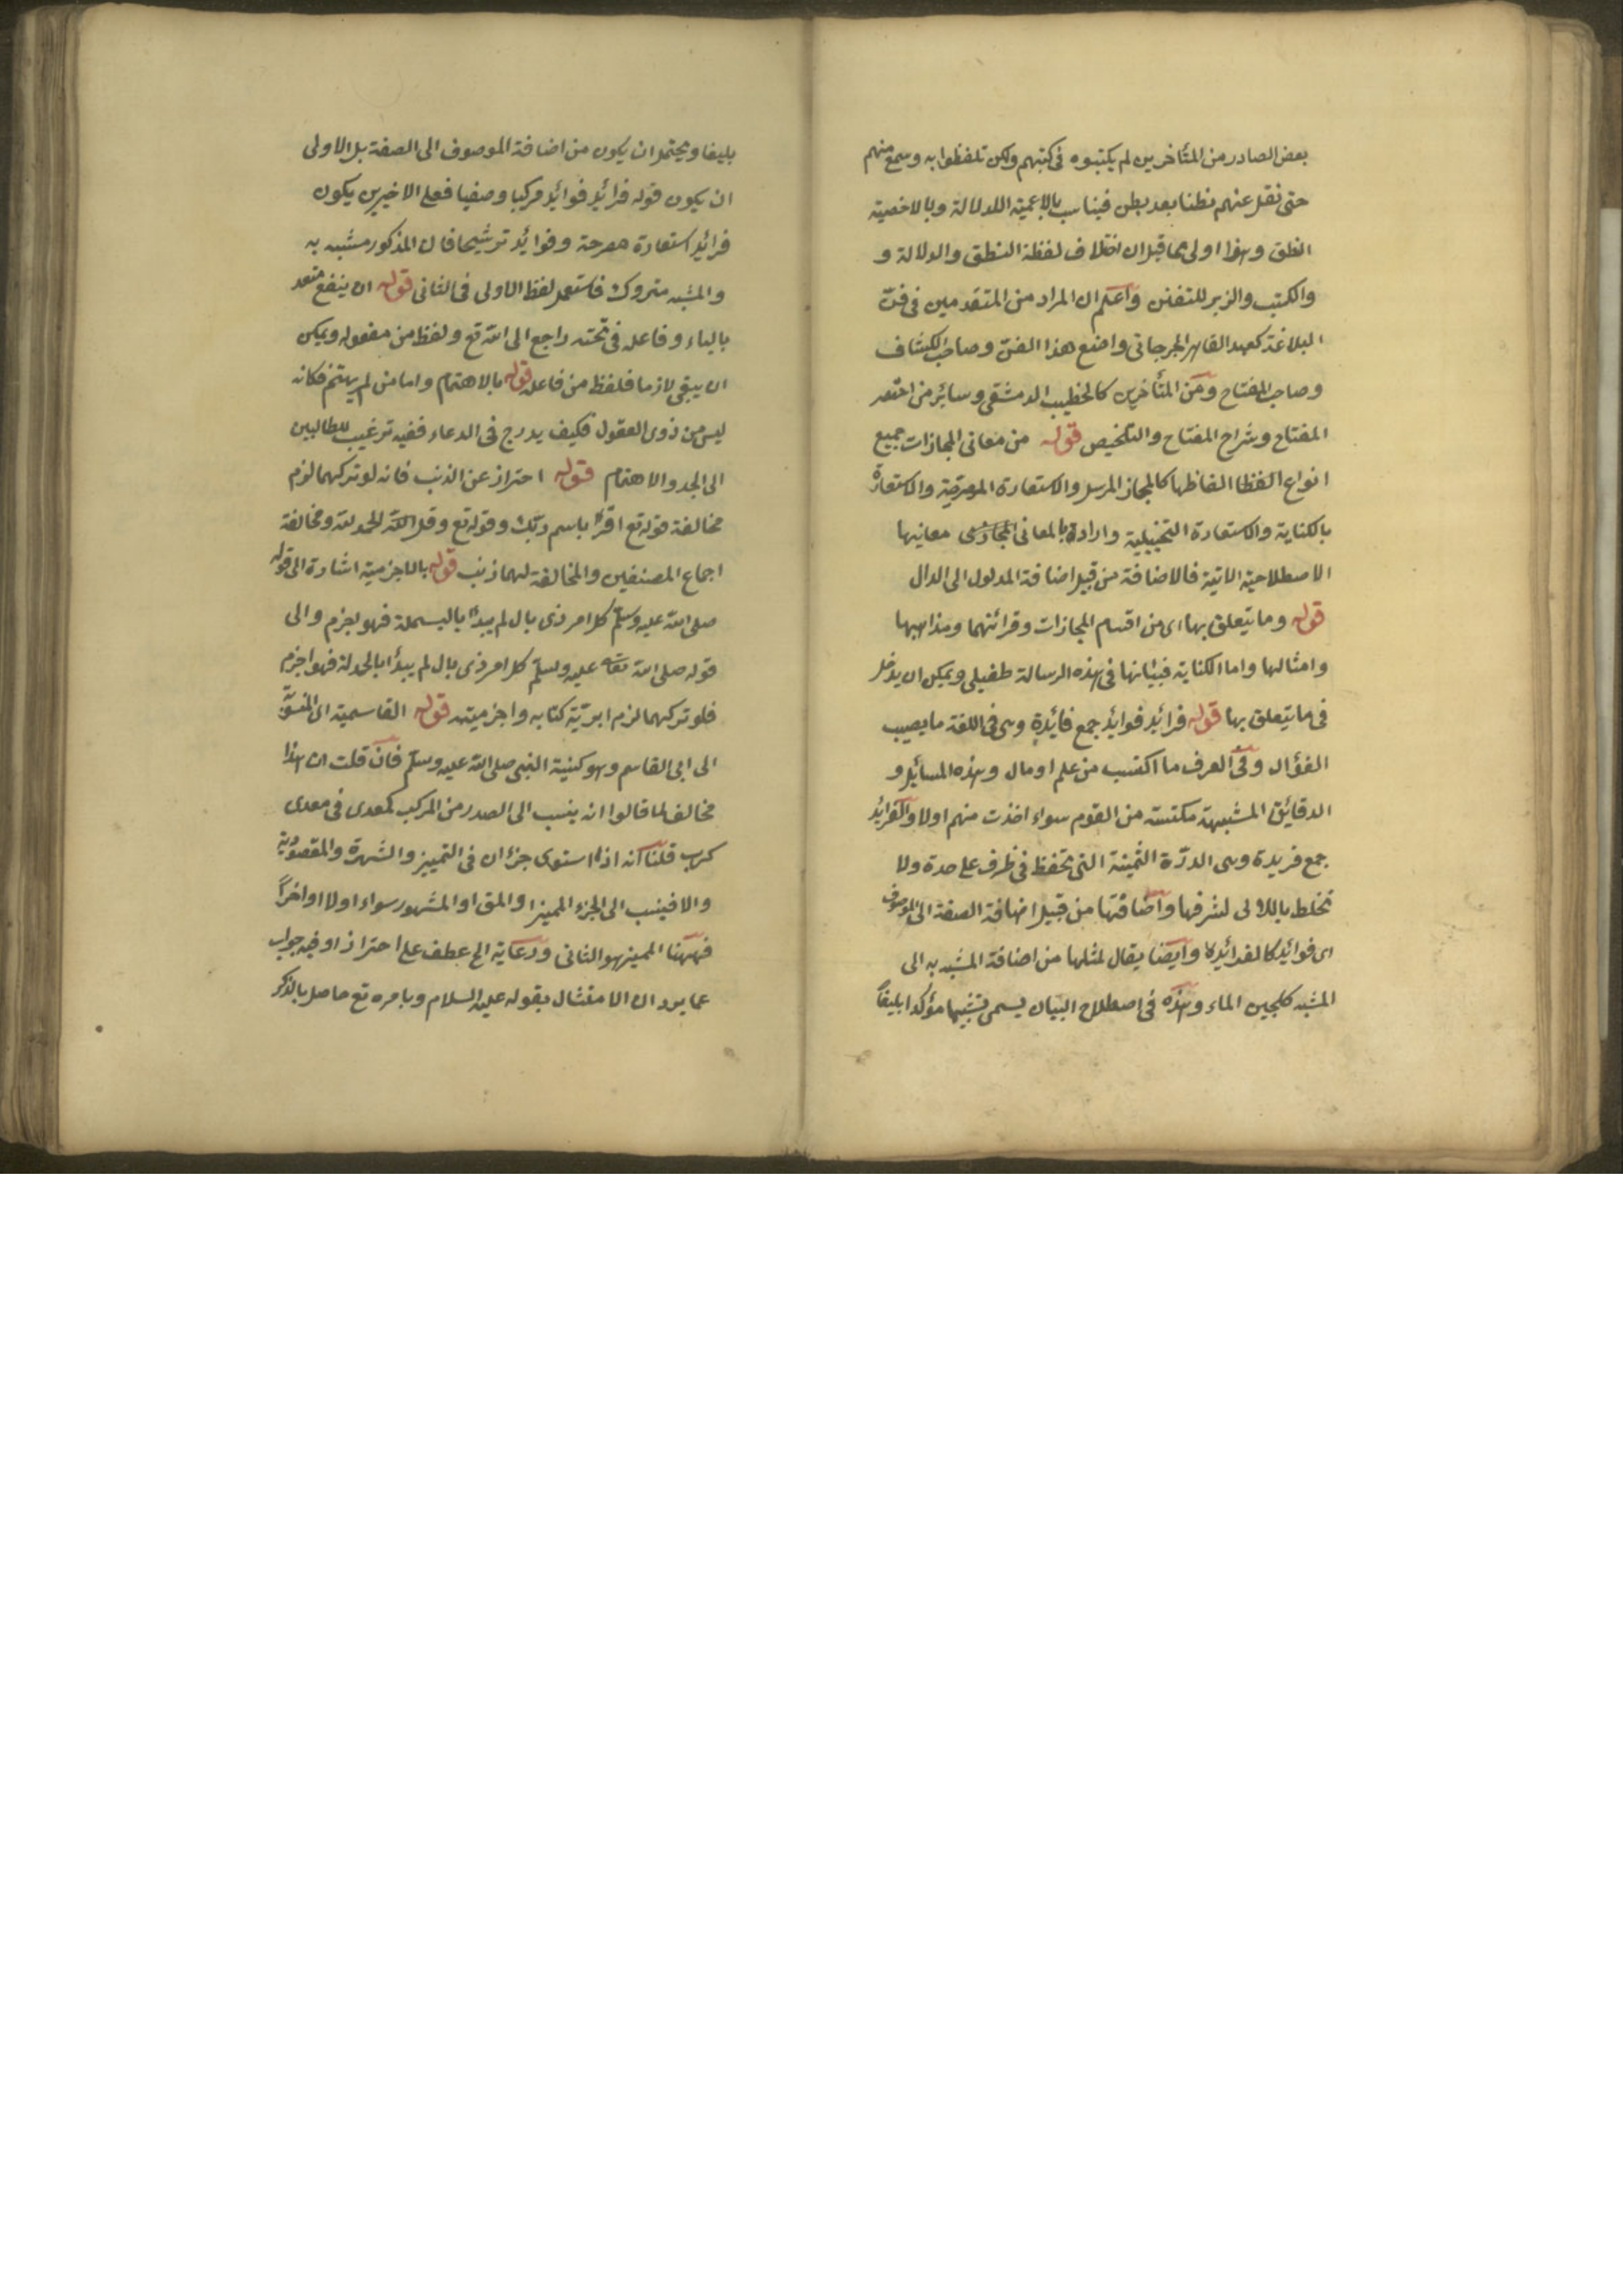 بعض الصادر من المتأخرين لم يكتبوه فى كتبهم ولكن تلفظوا به وسمع منهم
حتى نقل عنهم بطنا بعد بطن فيناسب بالاعمية الدلالة وبالاخصية
النطق وهذا اولى مما قيل ان اختلاف لفظة النطق والدلالة و
والكتب والزبر للتفنن واعلم ان المراد من المتقدمين فى فن
البلاغة كعبد القاهر الجرجانى واضع هذا الفن وصاحب الكشاف
وصاحب المفتاح ومن المتأخرين كالخطيب الدمشقى وسائر من اختصر
المفتاح وشراح المفتاح والتلخيص قوله من معانى المجازات جميع
انواع الفظا الفاظها كالمجاز المرسل والاستعارة المصرحة والاستعارة
بالكناية والاستعارة التخييلية وارادة بالمعانى معانيها
الاصطلاحية الاتية فالاضافة من قبيل اضافة المدلول الى الدال
قوله وما يتعلق بها اى من اقسام المجازات وقرائنهما ومذاهبها
وامثالها واما الكناية فبيانها فى هذه الرسالة طفيلى ويمكن ان يدخل
فى ما يتعلق بها قوله فرائد فوائد جمع فائدة وهى فى اللغة ما يصيب
الفؤاد وفى العرف ما اكتسب من علم او مال وهذه المسائل و
الدقائق المشبهة مكتسبة من القوم سواء اخذت منهم اولا والفرائد
جمع فريدة وهى الدرة الثمينة التى تحفظ فى ظرف على حدة ولا
تخلط باللالى لشرفها واضافتها من قبيل اضافة الصفة الى الموصوف
اى فوائد كالفرائد وايضا يقال لمثلها من اضافة المشبه به الى
المشبه كلجين الماء وهذه فى اصطلاح البيان يسمى تشبيها مؤكدا بليغاً
بليغا ويحتمل ان يكون من اضافة الموصوف الى الصفة بل الاولى
ان يكون قوله فرائد فوائد مركبا وصفيا فعلى الاخيرين يكون
فرائد استعارة مصرحة وفوائد ترشيحا فان المذكور مشبه به
والمشبه متروك فاستعمل لفظ الاولى فى الثانى قوله ان ينفع متعد
بالباء وفاعله فى تحته راجع الى الله تع ولفظ من مفعوله ويمكن
ان يبقى لازما فلفظ من فاعله قوله بالاهتمام واما من لم يهتم فكانه
ليس من ذوى العقول فكيف يدرج فى الدعاء ففيه ترغيب للطالبين
الى الجد والاهتمام قوله احتراز عن الذنب فانه لو تركهما لزم
مخالفة قوله تع اقرأ باسم ربك وقوله تع وقل الحمد لله ومخالفة
اجماع المصنفين والمخالفة لهما ذنب قوله بالاجزمية اشارة الى قوله
صلى الله عليه وسلم كل امر ذى بال لم يبدأ بالبسملة فهو اجزم والى
قوله صلى الله تعالى عليه وسلم كل امر ذى بال لم يبدأ بالحمدلة فهو اجزم
فلو تركهما لزم ابترية كتابه واجزميته قوله القاسمية اى
الى ابى القاسم وهو كنية النبى صلى الله عليه وسلم فان قلت ان هذا
مخالف لما قالوا انه ينسب الى الصدر من المركب كمعدى فى معدى
كرب قلنا انه اذا استوى جزان فى التمييز والشهرة والمقصودية
والا فينسب الى الجزء المميز او المق او المشهور سواء اولا او اخراً
فههنا المميز هو الثانى ورعاية الخ عطف على احتراز او فيه جواب
عما يرد ان الامتثال بقوله عليه السلام وبامره تع حاصل بالذكر